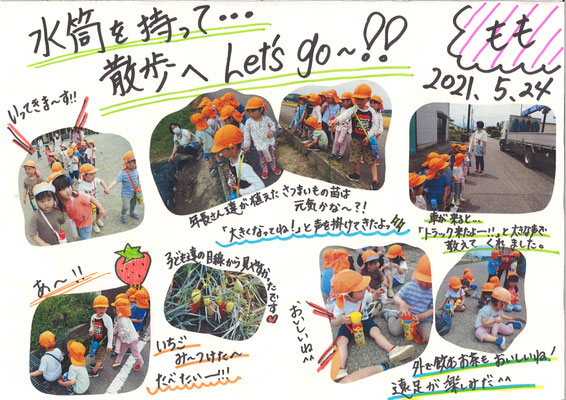 水筒を持って…
散歩へ Let's go～!!
もも
2021. 5. 24
いってきま～す!!
年長さん達が植えた さつまいもの苗は
元気かな～?!
「大きくなってね!」と声を掛けてきたよ
車が来ると…
「トラック来たよー!!」と大きな声で
教えてくれました。
あ～!!
子ども達の目線から見やすかったです
いちご
み～つけた～
たべたい―!!!
おいしいね^^
外で飲むお茶もおいしいね!
遠足が楽しみだ^^